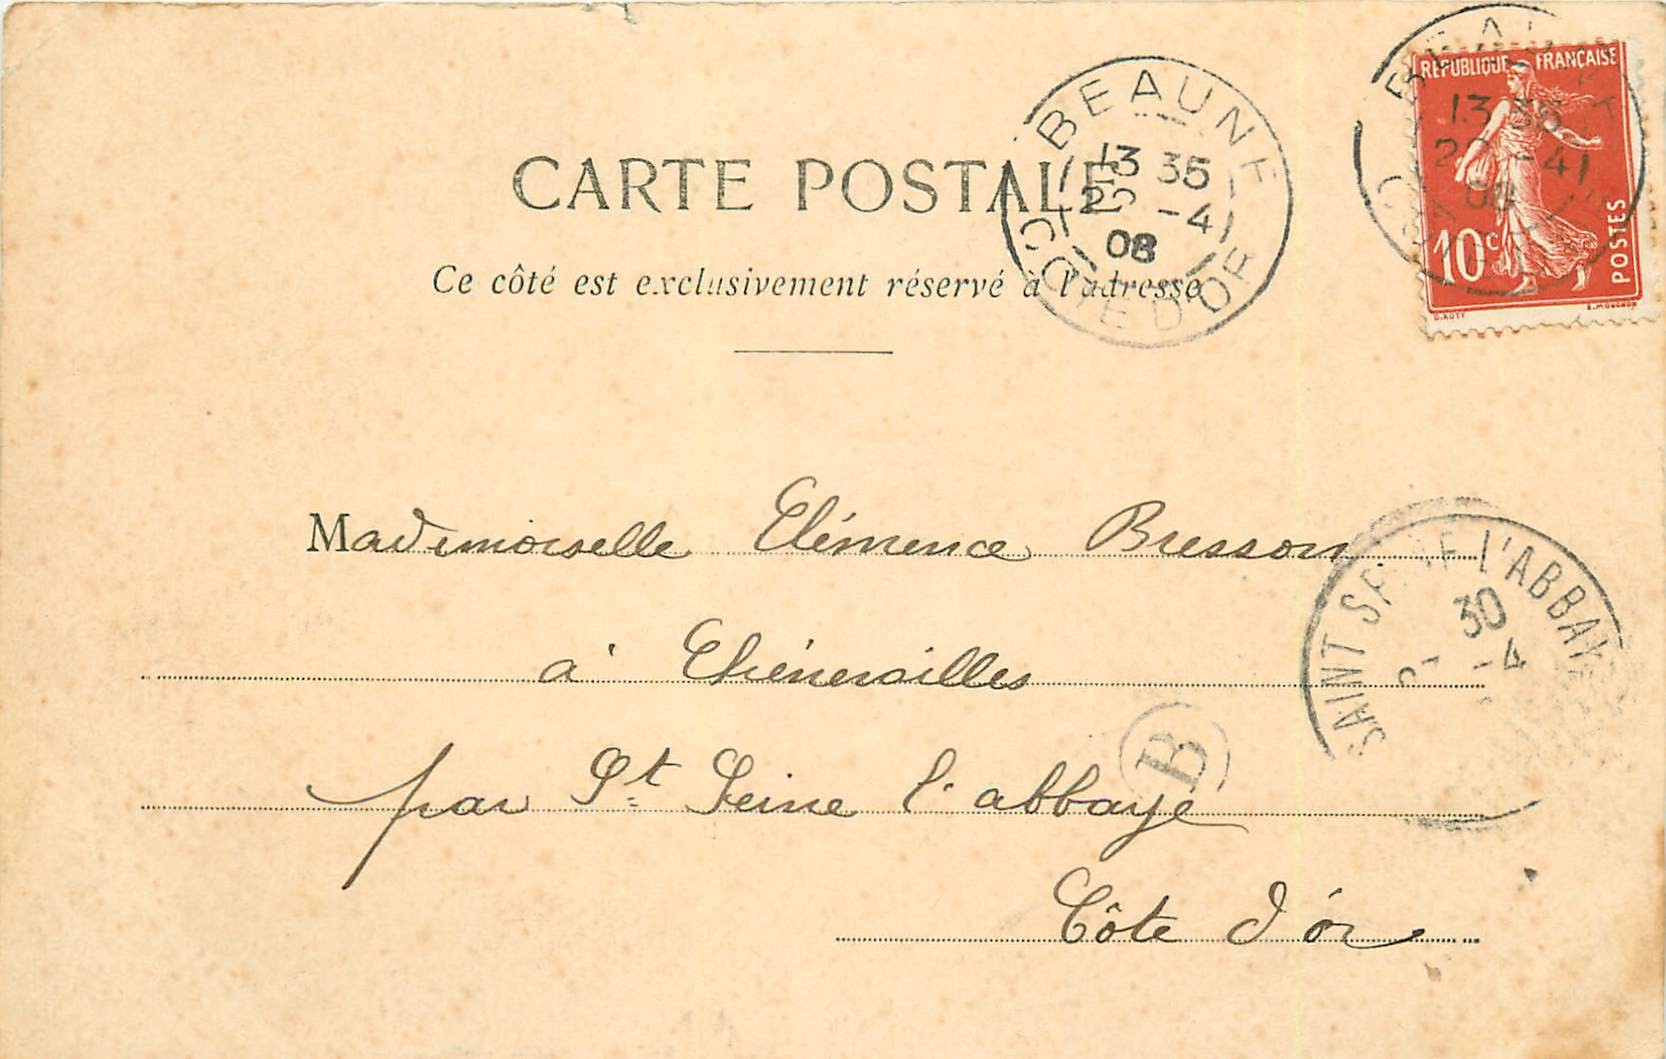 CARTE POSTALE
Ce côté est exclusivement réservé à l'adresse
BEAUNE
13 35
22 -4
08
COTE D'OR
RÉPUBLIQUE FRANÇAISE
10c
POSTES
O.ROTY
E.MOUCHON
BEAUNE
13 35
22 -4
08
Mademoiselle Clémence Bresson
à Chénerailles
par St Seine l'abbaye
Côte d'or
SAINT SEINE L'ABBAYE
30
-4
B